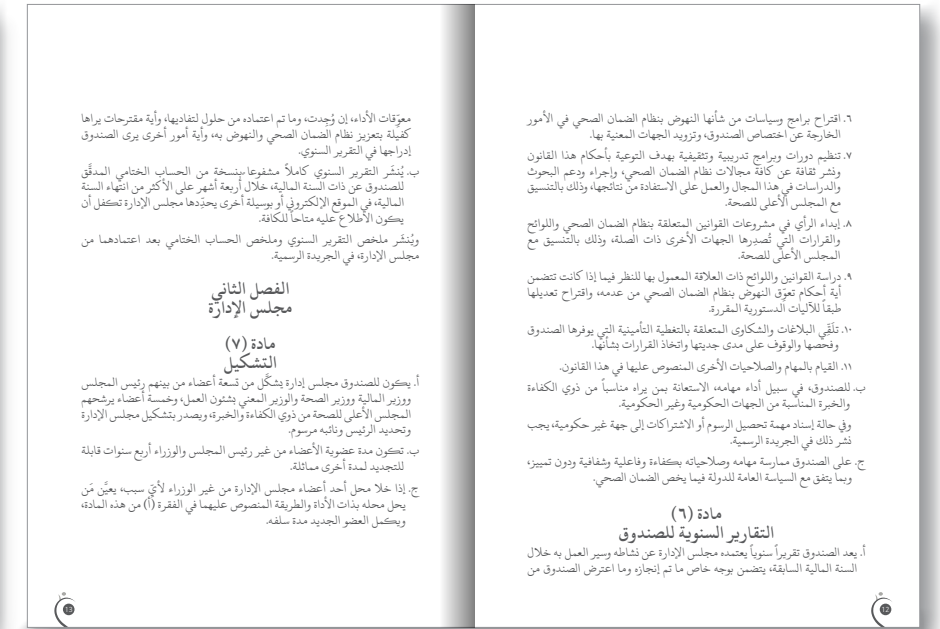 ٦. اقتراح برامج وسياسات من شأنها النهوض بنظام الضمان الصحي في الأمور
الخارجة عن اختصاص الصندوق، وتزويد الجهات المعنية بها.
٧. تنظيم دورات وبرامج تدريبية وتثقيفية بهدف التوعية بأحكام هذا القانون
ونشر ثقافة عن كافة مجالات نظام الضمان الصحي، وإجراء ودعم البحوث
والدراسات في هذا المجال والعمل على الاستفادة من نتائجها، وذلك بالتنسيق
مع المجلس الأعلى للصحة.
٨. إبداء الرأي في مشروعات القوانين المتعلقة بنظام الضمان الصحي واللوائح
والقرارات التي تُصدِرها الجهات الأخرى ذات الصلة، وذلك بالتنسيق مع
المجلس الأعلى للصحة.
٩. دراسة القوانين واللوائح ذات العلاقة المعمول بها للنظر فيما إذا كانت تتضمن
أية أحكام تعوّق النهوض بنظام الضمان الصحي من عدمه، واقتراح تعديلها
طبقاً للآليات الدستورية المقررة.
١٠. تلَقِّي البلاغات والشكاوى المتعلقة بالتغطية التأمينية التي يوفرها الصندوق
وفحصها والوقوف على مدى جديتها واتخاذ القرارات بشأنها.
١١. القيام بالمهام والصلاحيات الأخرى المنصوص عليها في هذا القانون.
ب. للصندوق، في سبيل أداء مهامه، الاستعانة بمن يراه مناسباً من ذوي الكفاءة
والخبرة المناسبة من الجهات الحكومية وغير الحكومية.
وفي حالة إسناد مهمة تحصيل الرسوم أو الاشتراكات إلى جهة غير حكومية، يجب
نشر ذلك في الجريدة الرسمية.
ج. على الصندوق ممارسة مهامه وصلاحياته بكفاءة وفاعلية وشفافية ودون تمييز،
وبما يتفق مع السياسة العامة للدولة فيما يخص الضمان الصحي.
مادة (٦)
التقارير السنوية للصندوق
أ. يعد الصندوق تقريراً سنوياً يعتمده مجلس الإدارة عن نشاطه وسير العمل به خلال
السنة المالية السابقة، يتضمن بوجه خاص ما تم إنجازه وما اعترض الصندوق من
12
معوّقات الأداء، إن وُجِدت، وما تم اعتماده من حلول لتفاديها، وأية مقترحات يراها
كفيلة بتعزيز نظام الضمان الصحي والنهوض به، وأية أمور أخرى يرى الصندوق
إدراجها في التقرير السنوي.
ب. يُنشَر التقرير السنوي كاملاً مشفوعا بنسخة من الحساب الختامي المدقَّق
للصندوق عن ذات السنة المالية، خلال أربعة أشهر على الأكثر من انتهاء السنة
المالية، في الموقع الإلكتروني أو بوسيلة أخرى يحدِّدها مجلس الإدارة تكفل أن
يكون الاطلاع عليه متاحاً للكافة.
ويُنشَر ملخص التقرير السنوي وملخص الحساب الختامي بعد اعتمادهما من
مجلس الإدارة، في الجريدة الرسمية.
الفصل الثاني
مجلس الإدارة
مادة (٧)
التشكيل
أ. يكون للصندوق مجلس إدارة يشكَّل من تسعة أعضاء من بينهم رئيس المجلس
ووزير المالية ووزير الصحة والوزير المعني بشئون العمل، وخمسة أعضاء يرشحهم
المجلس الأعلى للصحة من ذوي الكفاءة والخبرة، ويصدر بتشكيل مجلس الإدارة
وتحديد الرئيس ونائبه مرسوم.
ب. تكون مدة عضوية الأعضاء من غير رئيس المجلس والوزراء أربع سنوات قابلة
للتجديد لمدة أخرى مماثلة.
ج. إذا خلا محل أحد أعضاء مجلس الإدارة من غير الوزراء لأيّ سبب، يعيَّن مَن
يحل محله بذات الأداة والطريقة المنصوص عليهما في الفقرة (أ) من هذه المادة،
ويكمل العضو الجديد مدة سلفه.
13